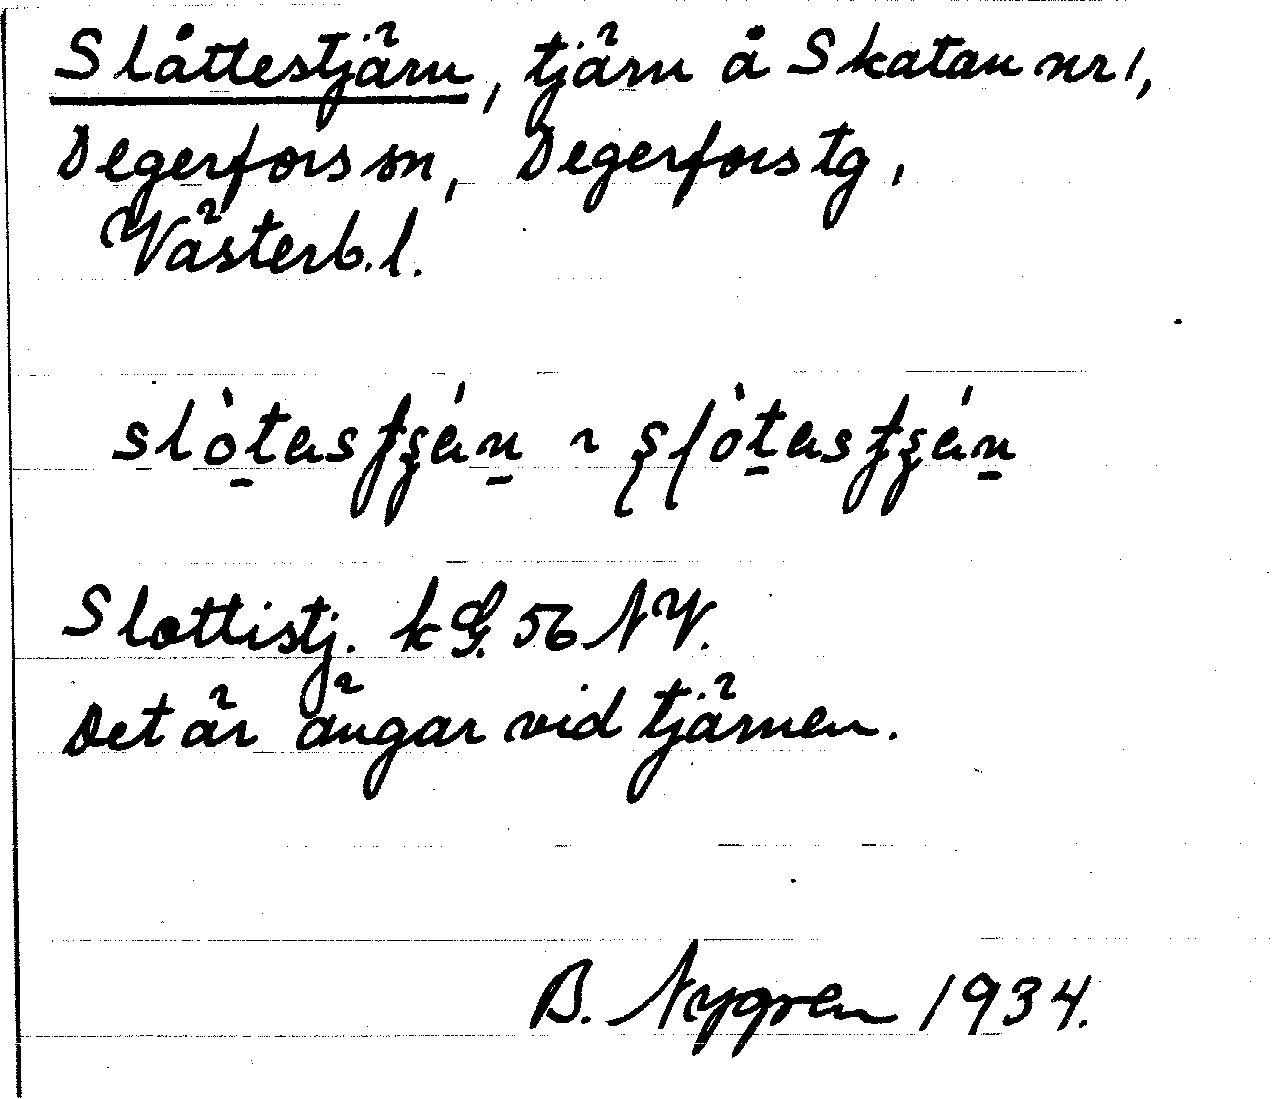 Slåttestjärn, tjärn å Skatan nr 1,
Degerfors sn, Degerfors tg,
Västerb. l.
Slottistj. kG. 56 NV.
Det är ängar vid tjärnen.
B. Nygren 1934.